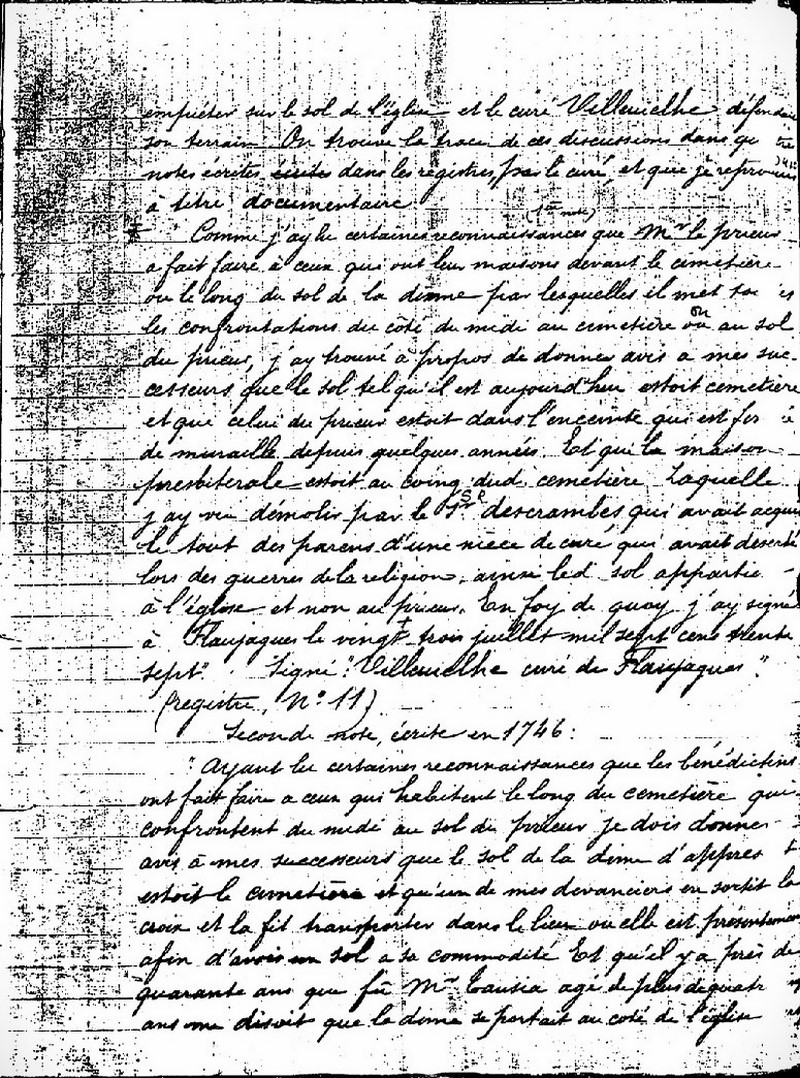 empiéter sur le sol de l'église et le curé Villemelhe défendre
son terrain. On trouve la trace de ces discussions dans
notes écrites écrites dans les registres, par le curé, et que je reproduis
à titre documentaire
(1ère note)
"Comme j'ay lu certaines reconnaissances que Mr le prieur
a fait faire à ceux qui ont leur maisons devant le cimetière
ou le long du sol de la dixme par lesquelles il met
les confrontations du côté du midi au cimetière ou au sol
du prieur, j'ay trouvé à propos de donner avis a mes suc-
cesseurs que le sol tel qu'il est aujourd'hui estoit cemetière
et que celui du prieur estoit dans l'enceinte qui est
de muraille depuis quelques années. Et que la maison
presbiterale estoit au coing dud. cemetière Laquelle
j'ay vu démolir par le Sr descrambes qui avait acquis
le tout des parens d'une nièce de curé qui avait deserté
lors des guerres de la religion, ainsi led. sol
à l'église et non au prieur. En foy de quoy j'ay signé
à Flaujagues le vingt trois juillet mil sept cens trente
sept". Signé: "Villemelhe curé de Flaujagues".
(registre, N° 11)
Seconde note, écrite en 1746:
"Ayant lu certaines reconnaissances que les bénédictins
ont fait faire a ceux qui habitent le long du cemetière qui
confrontent du midi au sol du prieur je dois donner
avis à mes successeurs que le sol de la dime d'appres
estoit le cimetière et qu'un de mes devanciers en sortit la
croix et la fit transporter dans le lieu ou elle est présentement
afin d'avoir un sol a sa commodité Et qu'il y a près de
quarante ans que fû Mr Causia agé de plus de quatre
ans me disoit que la dime se portait au coté de l'église